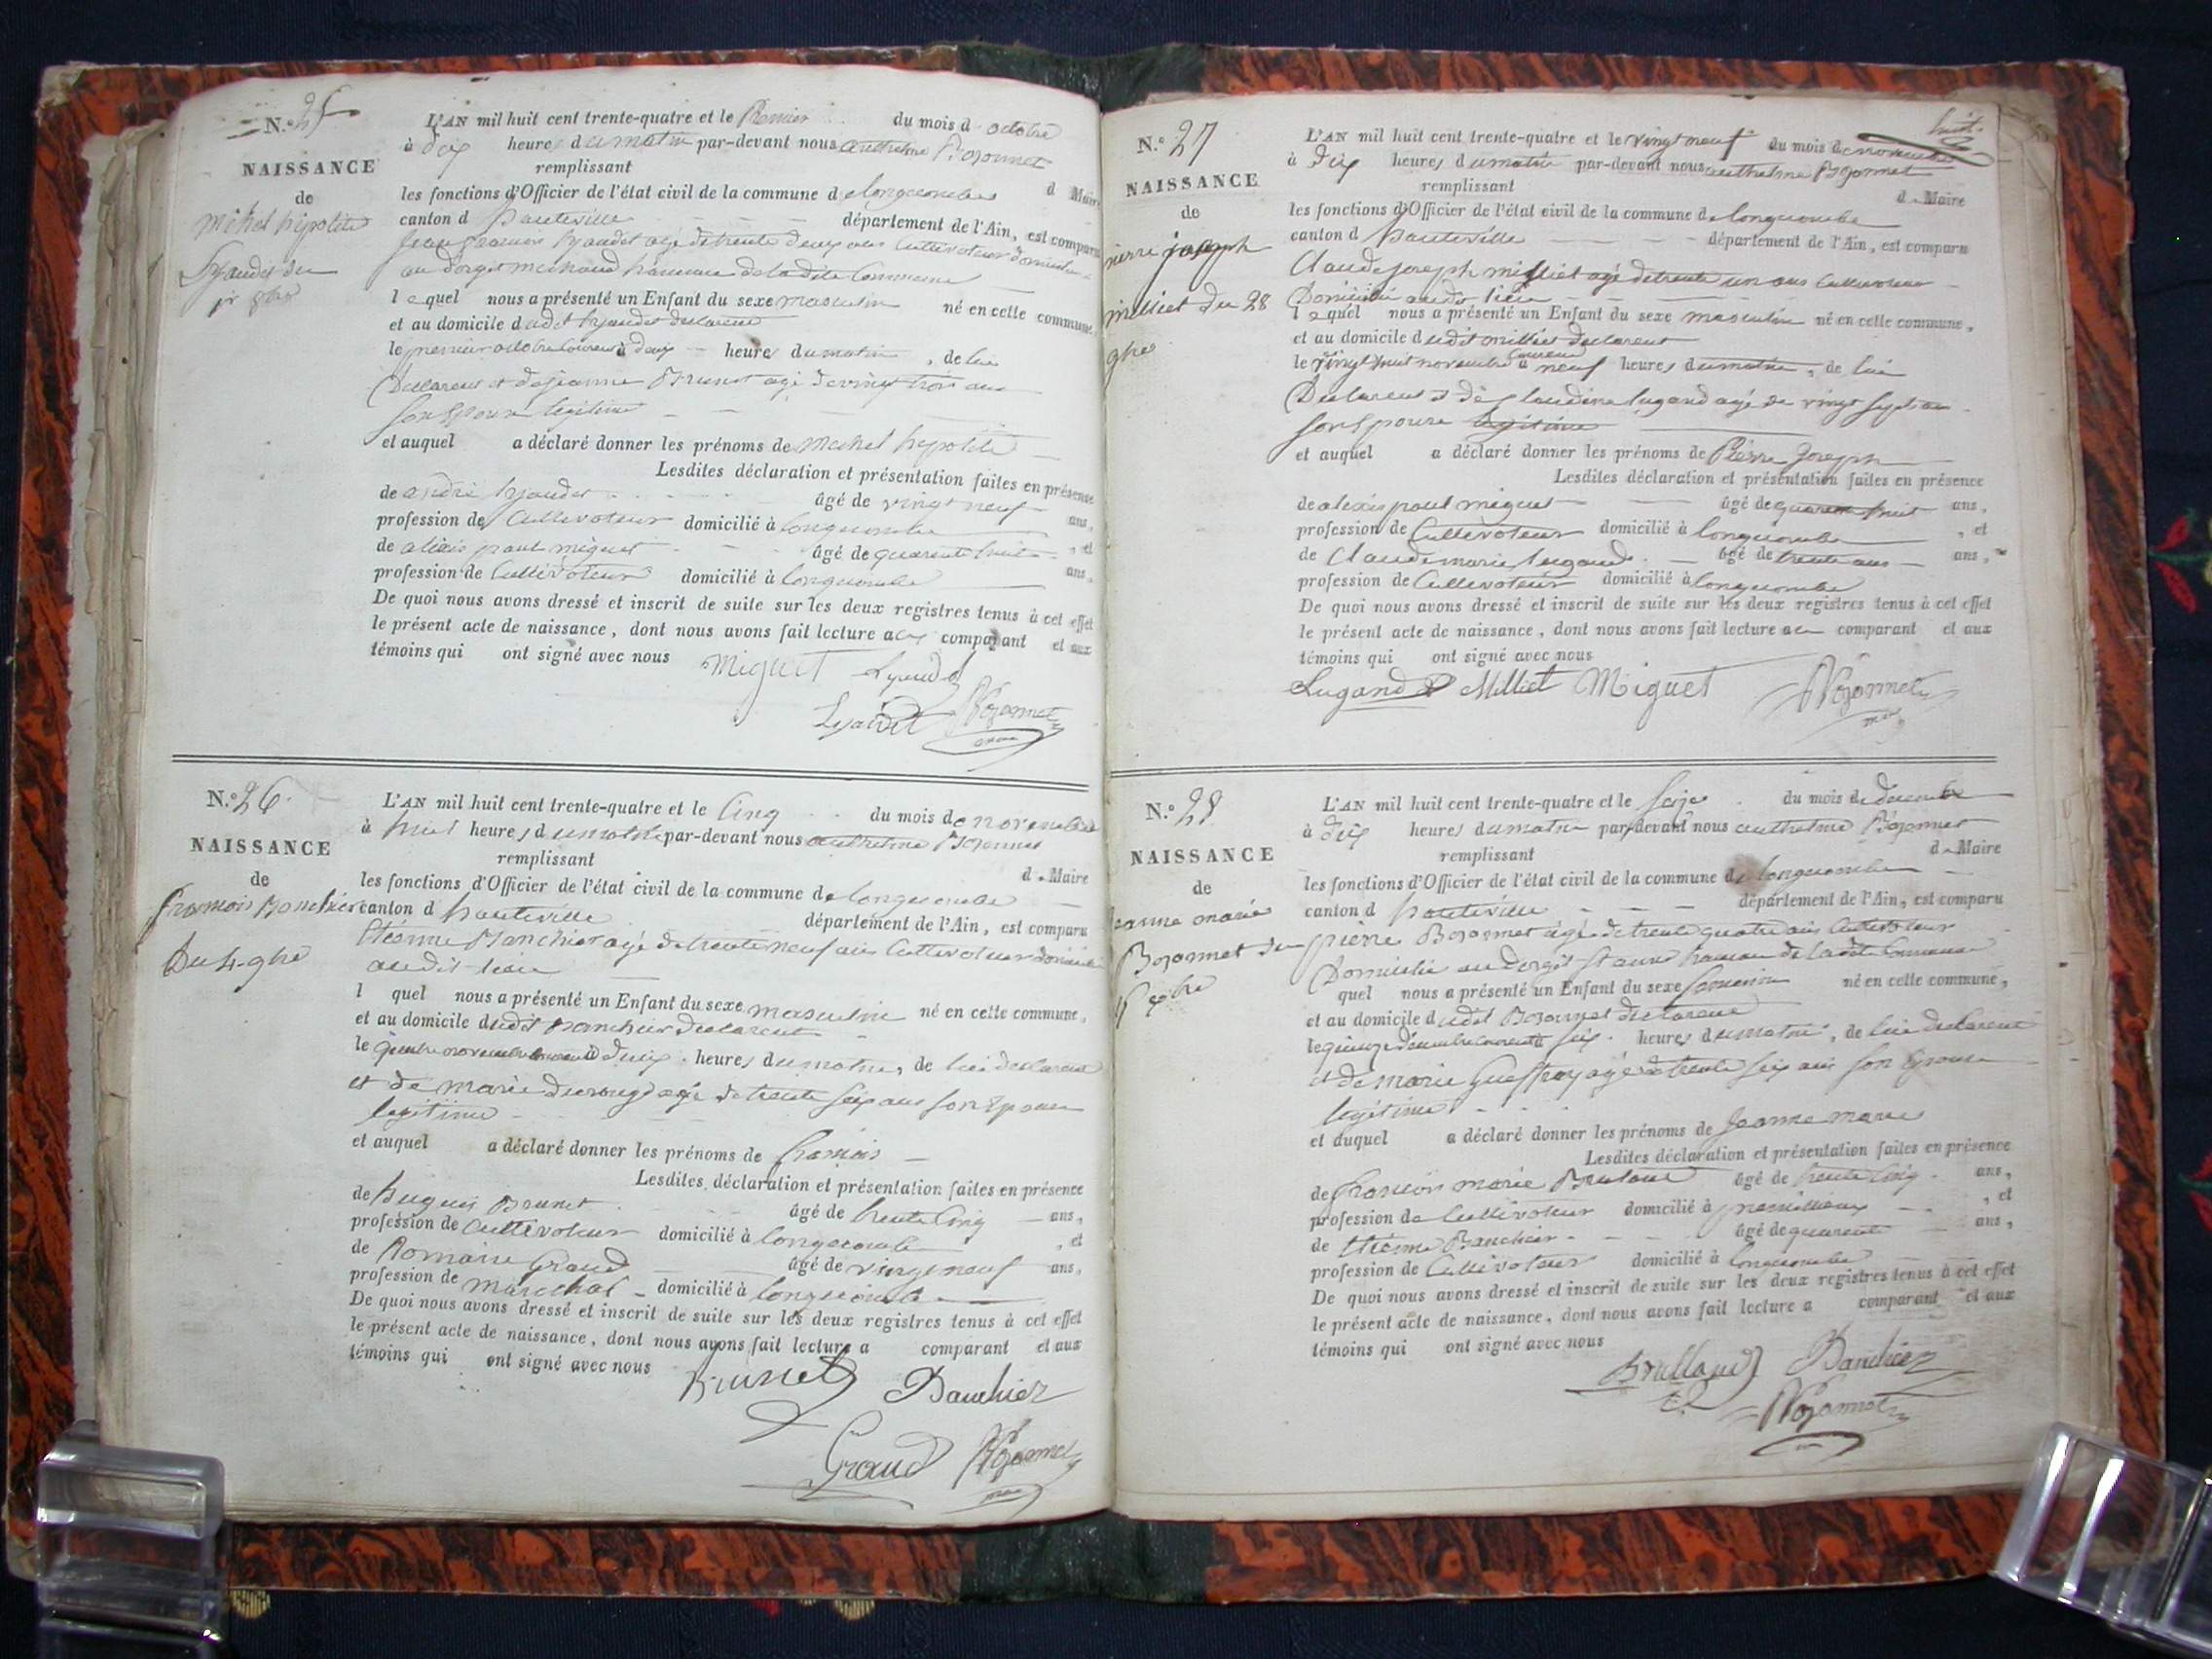 N.º 25
NAISSANCE
de
Michel hipolite
Lyaudet du
1er 8bre
L'AN mil huit cent trente-quatre et le Premier du mois d octobre
à dix heures du matin par-devant nous authelme Bozonnet
remplissant d Maire
les fonctions d'Officier de l'état civil de la commune de longecombe
canton d hauteville département de l'Ain, est comparu
Jean francois Lyaudet agé de trente deux ans Cultivateur
hameau de la dite Commune
lequel nous a présenté un Enfant du sexe masculin né en cette commune
et au domicile dudit Lyaudet declarent
le premier octobre courent à deux heures du matin, de lui
Declarent et de jeanne Brunet agé de vingt trois ans
son Epouse legitime
et auquel a déclaré donner les prénoms de Michel hippolite
Lesdites déclaration et présentation faites en présence
de andré Lyaudet âgé de vingt neuf ans,
profession de Cultivateur domicilié à longecombe, et
de alexis paul miguet âgé de quarente huit ans,
profession de Cultivateur domicilié à longecombe
De quoi nous avons dressé et inscrit de suite sur les deux registres tenus à cet effet
le présent acte de naissance, dont nous avons fait lecture au comparant et aux
témoins qui ont signé avec nous
Miguet Lyaudet
Lyaudet Bozonnet
N.º 26
NAISSANCE
de
francois Banchier
Du 4 9bre
L'AN mil huit cent trente-quatre et le Cinq du mois de novembre
à huit heures du matin par-devant nous authelme Bozonnet
remplissant d Maire
les fonctions d'Officier de l'état civil de la commune de longecombe
canton d hauteville département de l'Ain, est comparu
Etienne Banchier agé de trente neuf ans Cultivateur domicilié
audit lieu
l quel nous a présenté un Enfant du sexe masculin né en cette commune,
et au domicile dudit Banchier declarent
le quatre novembre courent à deux heures du matin, de lui declarent
et de marie agé de trente six ans son Epouse
legitime
et auquel a déclaré donner les prénoms de francois
Lesdites déclaration et présentation faites en présence
de hugues Brunet âgé de trente Cinq ans,
profession de Cultivateur domicilié à longecombe, et
de Romain Graud âgé de vingt neuf ans,
profession de marechal domicilié à longecombe
De quoi nous avons dressé et inscrit de suite sur les deux registres tenus à cet effet
le présent acte de naissance, dont nous avons fait lecture a comparant et aux
témoins qui ont signé avec nous
Brunet Banchier
Graud Bozonnet
huit
N.º 27
NAISSANCE
de
pierre joseph
milliet du 28
9bre
L'AN mil huit cent trente-quatre et le vingt neuf du mois de novembre
à dix heures du matin par-devant nous authelme Bozonnet
remplissant d Maire
les fonctions d'Officier de l'état civil de la commune de longecombe
canton d hauteville département de l'Ain, est comparu
Claude joseph milliet agé de trente un ans Cultivateur
Domicilié audit lieu
lequel nous a présenté un Enfant du sexe masculin né en cette commune,
et au domicile dudit milliet declarent
le vingt huit novembre courent à neuf heures du matin, de lui
Declarent et de Claudine lugand agé de vingt sept ans
son Epouse legitime
et auquel a déclaré donner les prénoms de Pierre Joseph
Lesdites déclaration et présentation faites en présence
de alexis paul miguet âgé de quarente huit ans,
profession de Cultivateur domicilié à longecombe, et
de Claude marie lugand âgé de trente ans ans,
profession de Cultivateur domicilié à longecombe
De quoi nous avons dressé et inscrit de suite sur les deux registres tenus à cet effet
le présent acte de naissance, dont nous avons fait lecture au comparant et aux
témoins qui ont signé avec nous
Lugand Milliet Miguet Bozonnet
N.º 28
NAISSANCE
de
jeanne marie
Bozonnet du
15 xbre
L'AN mil huit cent trente-quatre et le Seize du mois de decembre
à dix heures du matin par-devant nous authelme Bozonnet
remplissant d Maire
les fonctions d'Officier de l'état civil de la commune de longecombe
canton d hauteville département de l'Ain, est comparu
pierre Bozonnet agé de trente quatre ans Cultivateur
Domicilié hameau de la dite Commune
quel nous a présenté un Enfant du sexe feminin né en cette commune,
et au domicile dudit Bozonnet declarent
le quinze decembre courent à six heures du matin, de lui declarent
et de marie agé de trente six ans son Epouse
legitime
et auquel a déclaré donner les prénoms de Jeanne marie
Lesdites déclaration et présentation faites en présence
de francois marie âgé de trente Cinq ans,
profession de Cultivateur domicilié à premillieux, et
de Etienne Banchier âgé de quarente ans,
profession de Cultivateur domicilié à longecombe
De quoi nous avons dressé et inscrit de suite sur les deux registres tenus à cet effet
le présent acte de naissance, dont nous avons fait lecture a comparant et aux
témoins qui ont signé avec nous
Banchier
Bozonnet